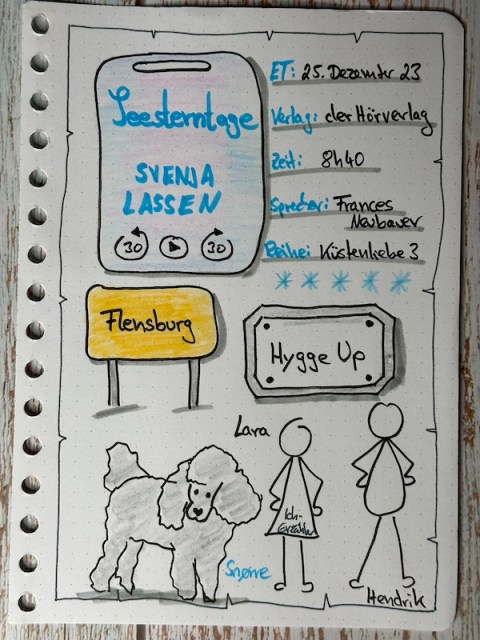 Seesterntage
SVENJA
LASSEN
30 30
ET: 25. Dezember 23
Verlag: der Hörverlag
Zeit: 8h40
Sprecher: Frances
Neubauer
Reihe: Küstenliebe 3
Flensburg
Hygge Up
Lara
Ich-
Erzähler
Snørre
Hendrik